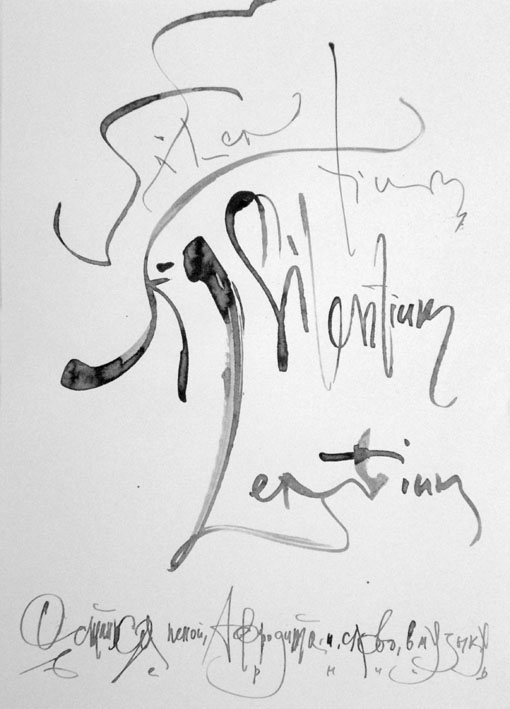 Silen
tium,
Silentium
Silentium
Останься пеной, Афродита, и, слово, в музыку
вернись